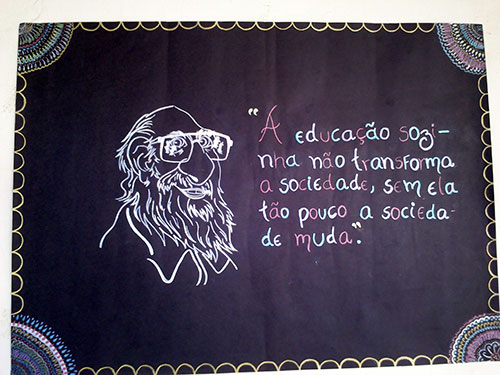 "A educação sozi-
nha não transforma
a sociedade, sem ela
tão pouco a socieda-
de muda".